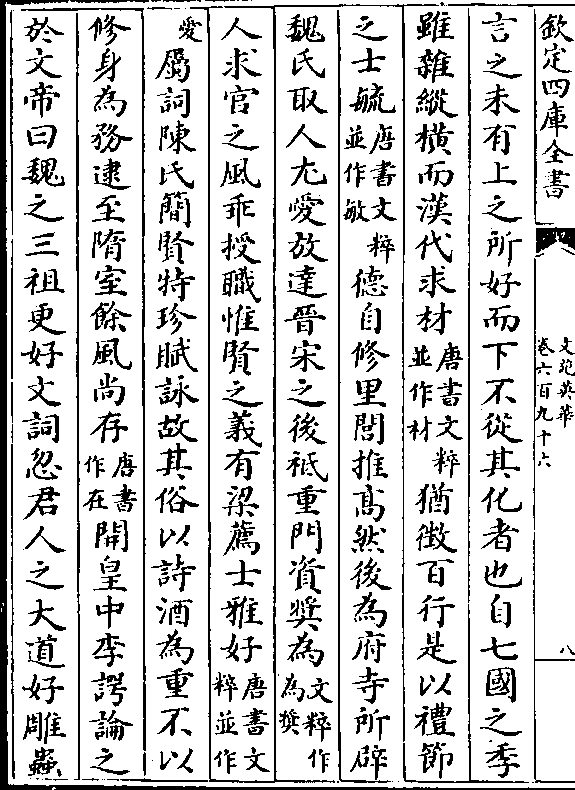 欽定四庫全書
文苑英華
卷六百九十六
八
言之未有上之所好而下不從其化者也自七國之季
雖雜縱横而漢代求材唐書文粹並作材猶徴百行是以禮節
之士毓唐書文粹並作敏德自修里閭推髙然後為府寺所辟
魏氏取人尤愛放達晉宋之後祗重門資奬為文粹作為奬
人求官之風乖授職惟賢之義有梁薦士雅好唐書文粹並作
愛屬詞陳氏簡賢特珍賦詠故其俗以詩酒為重不以
修身為務逮至隋室餘風尚存唐書作在開皇中李諤論之
於文帝曰魏之三祖更好文詞忽君人之大道好雕蟲